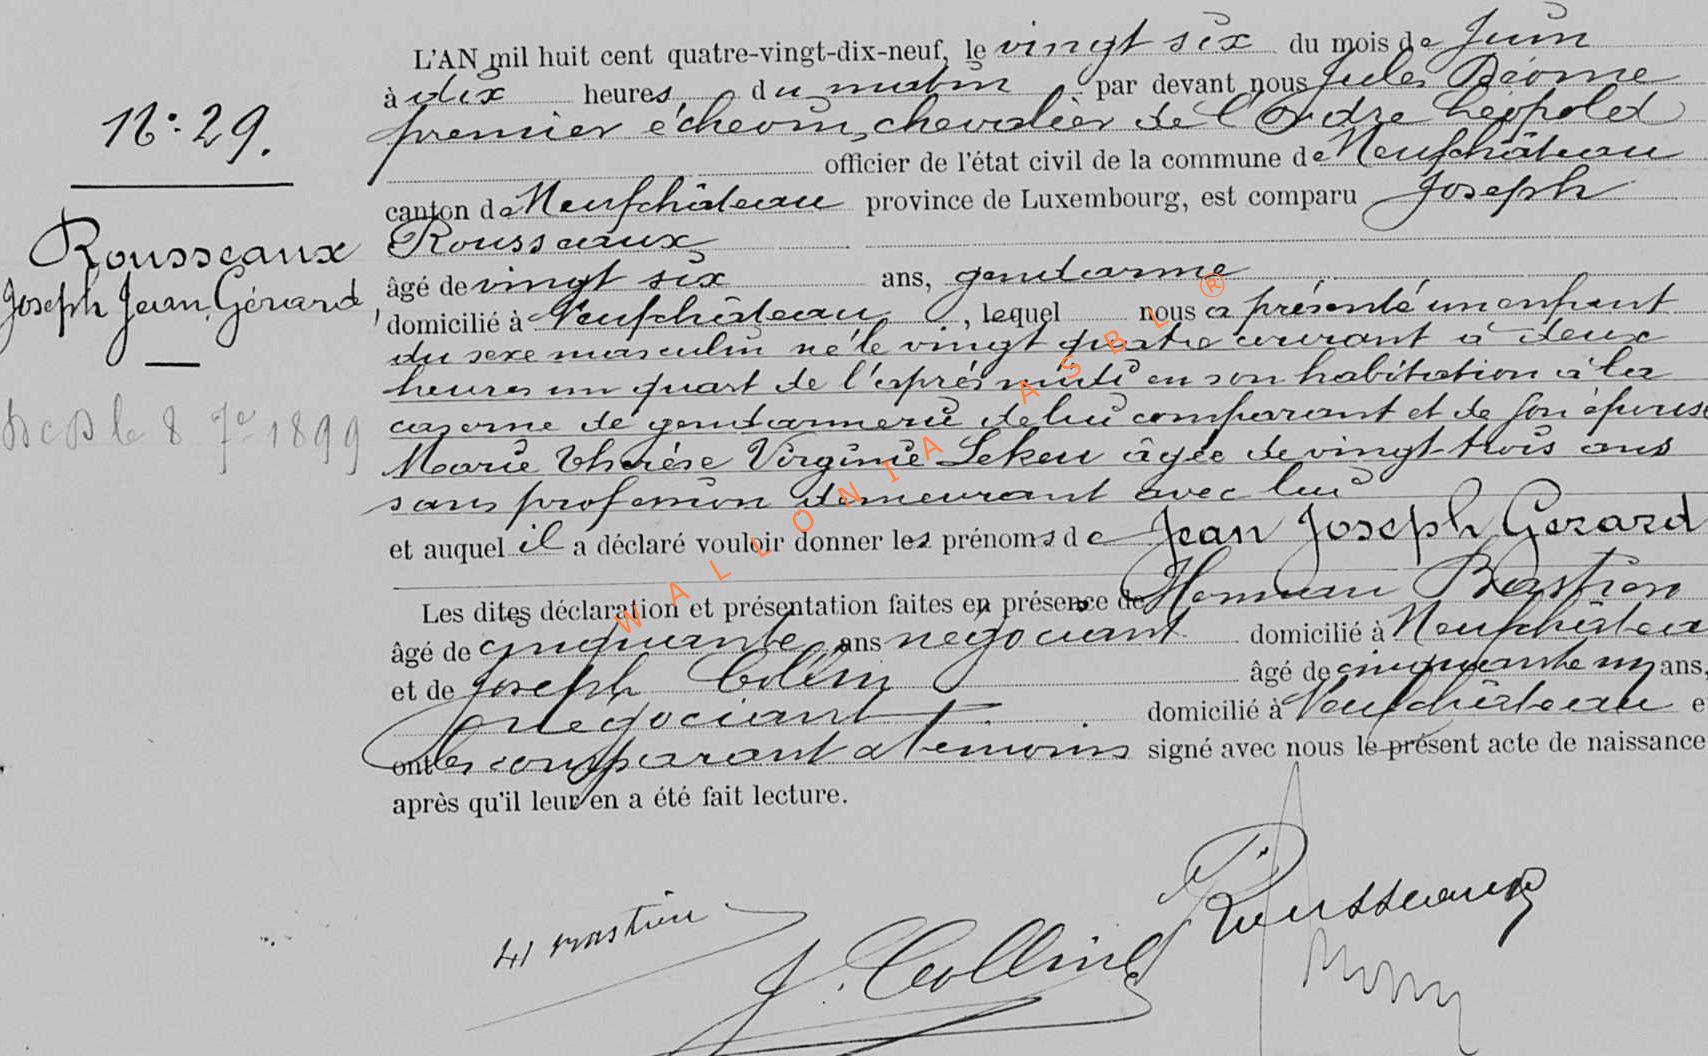 N°: 29.
Rousseaux
Joseph Jean Gérard,
le 8 7re 1899
L'AN mil huit cent quatre-vingt-dix-neuf, le vingt six du mois de Juin
à dix heures, du matin par devant nous Jules
premier échevin, chevalier de l'Ordre Léopold
officier de l'état civil de la commune de Neufchâteau
canton de Neufchâteau province de Luxembourg, est comparu Joseph
Rousseaux
âgé de vingt six ans, gendarme
domicilié à Neufchâteau, lequel nous a présenté un enfant
du sexe masculin né le vingt quatre courant à deux
heures un quart de l'après midi en son habitation à la
caserne de gendarmerie de lui comparant et de son épouse
Marie Thérèse Virginie Lekeu âgée de vingt-trois ans
sans profession demeurant avec lui
et auquel il a déclaré vouloir donner les prénoms de Jean Joseph Gerard
Les dites déclaration et présentation faites en présence de Herman Bastien
âgé de cinquante ans négociant domicilié à Neufchâteau
et de Joseph Collin âgé de cinquante un ans,
négociant domicilié à Neufchâteau e
ont les comparant et témoins signé avec nous le présent acte de naissance
après qu'il leur en a été fait lecture.
H Bastien
J. Collin
Rousseaux
WALLONIA ASBL ®